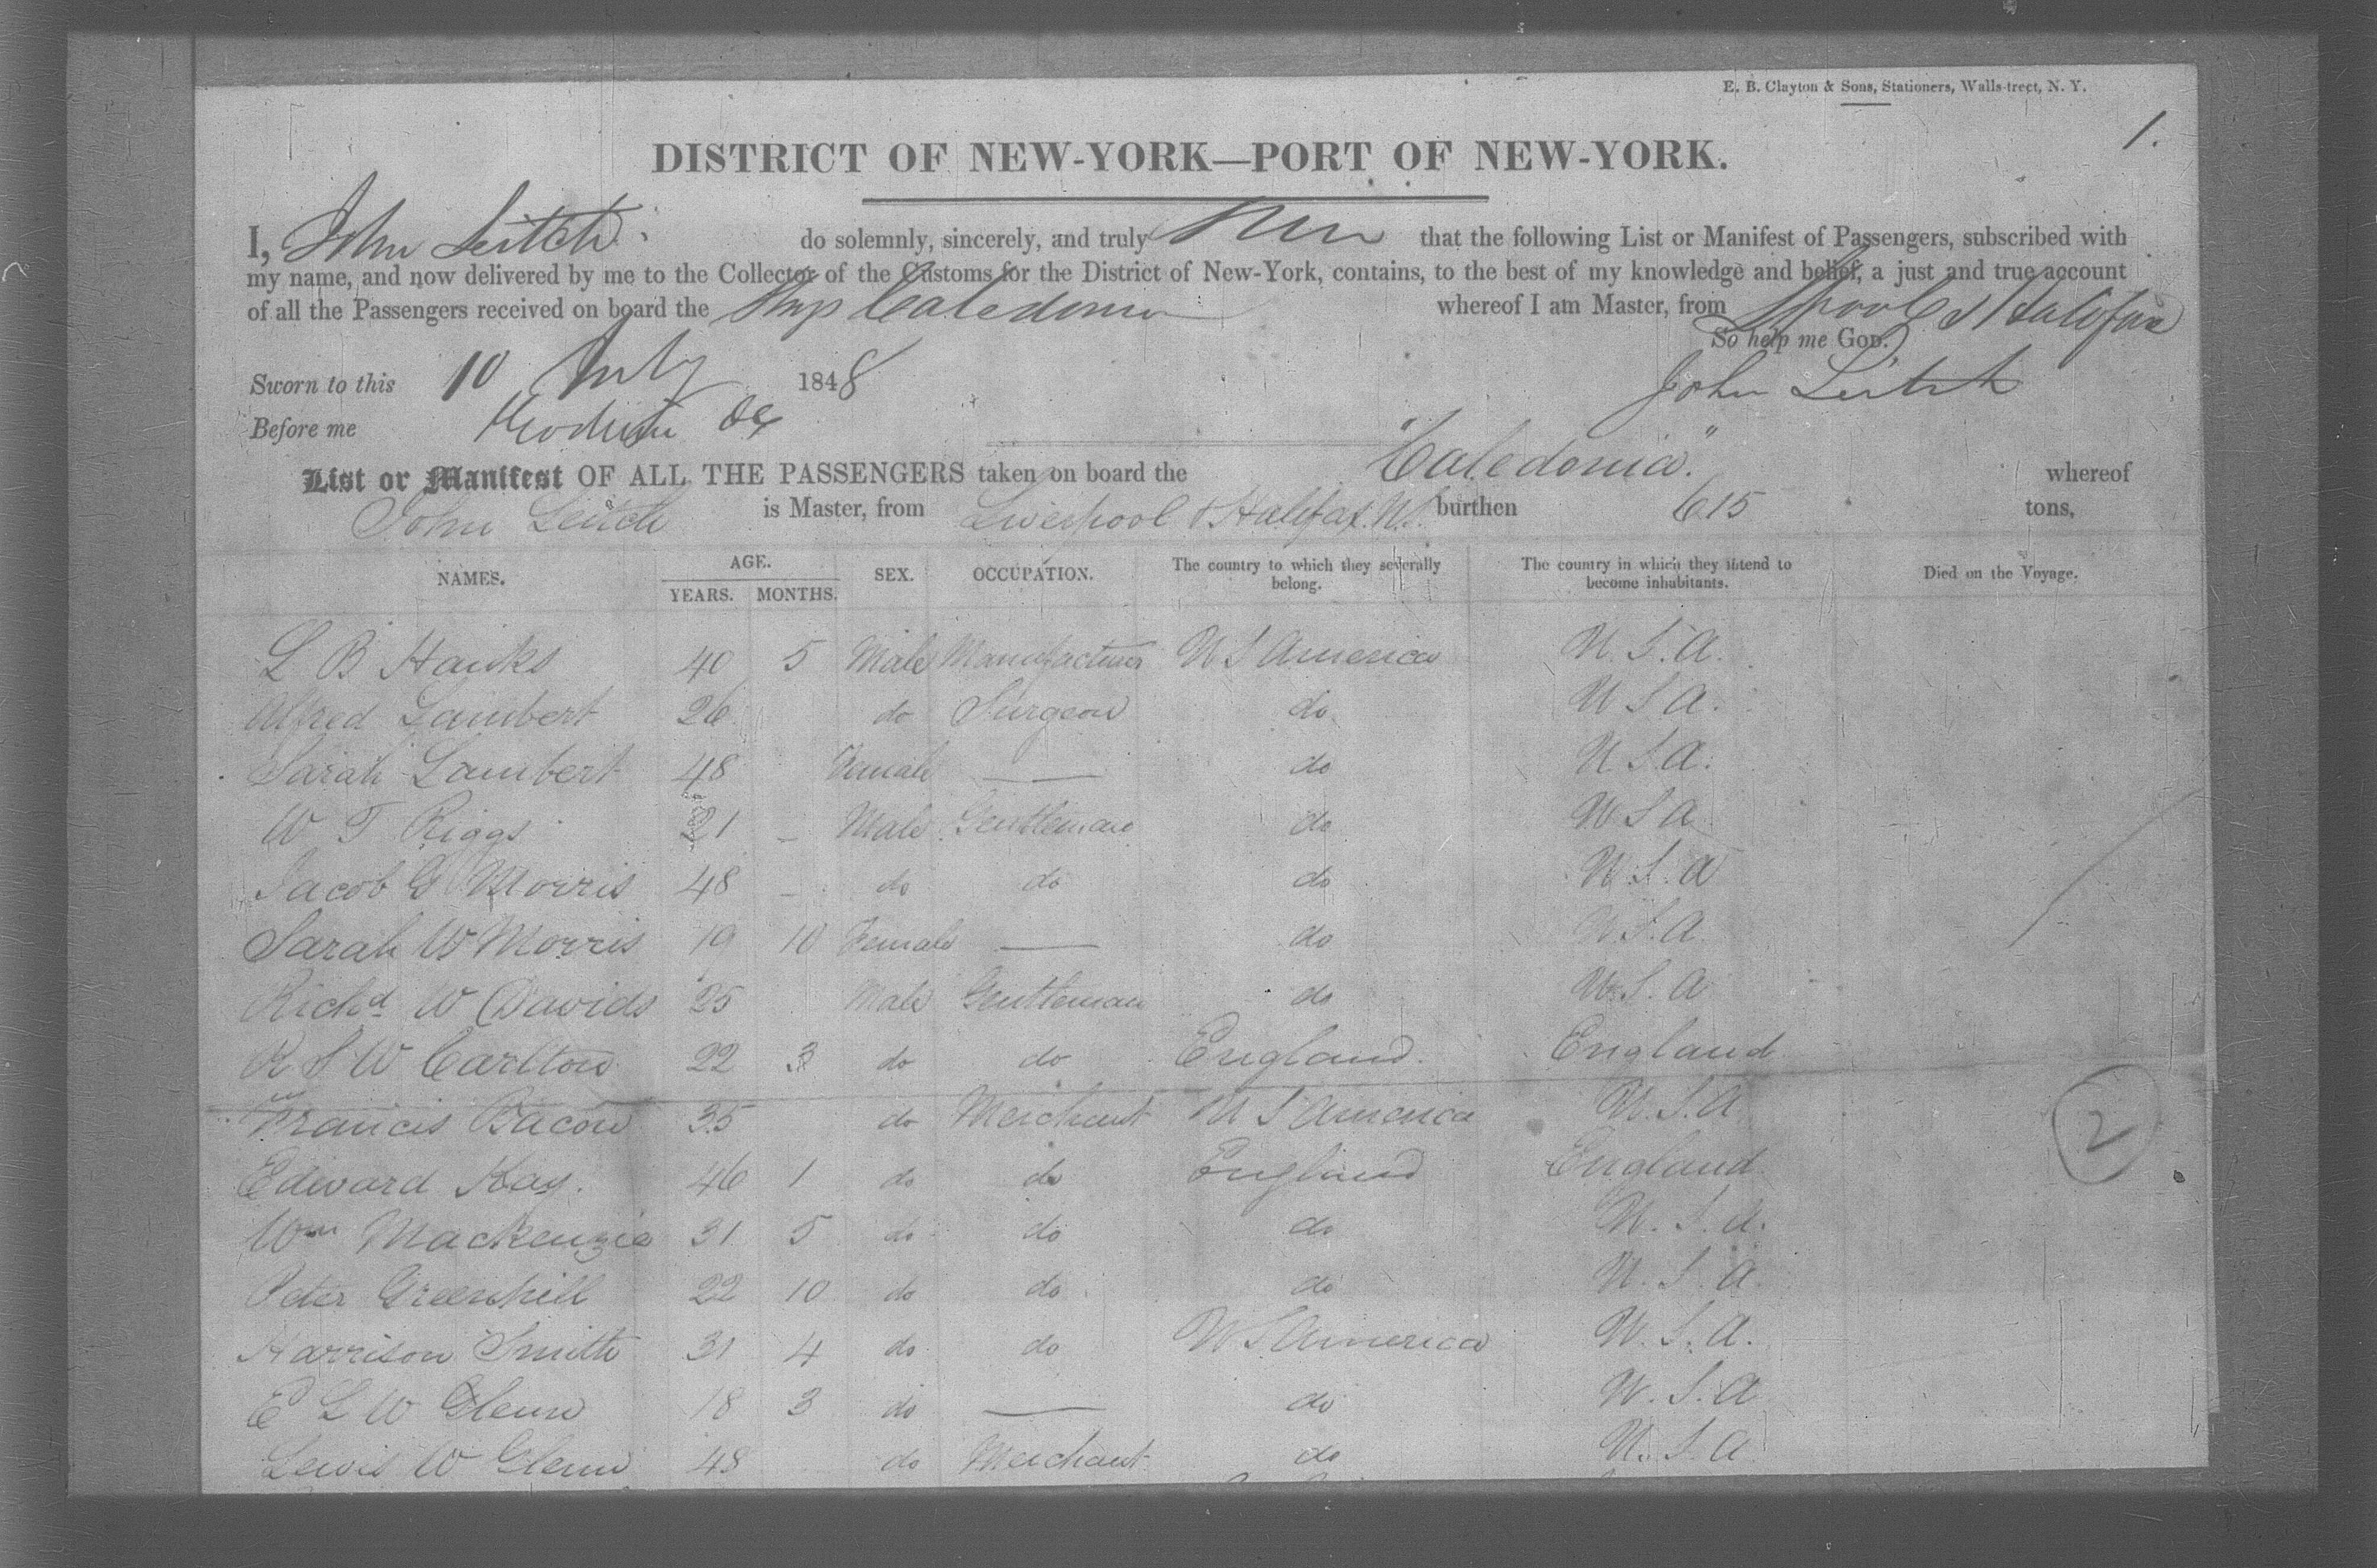 E. B. Clayton & Sons, Stationers, Walls-treet, N. Y.
1.
DISTRICT OF NEW-YORK—PORT OF NEW-YORK.
I, John Leitch do solemnly, sincerely, and truly that the following List or Manifest of Passengers, subscribed with
my name, and now delivered by me to the Collector of the Customs for the District of New-York, contains, to the best of my knowledge and belief, a just and true account
of all the Passengers received on board the Ship Caledonia whereof I am Master, from Lpool & Halifax
So help me GOD.
Sworn to this 10 July 1848 John Leitch
Before me
List or Manifest OF ALL THE PASSENGERS taken on board the "Caledonia" whereof
John Leitch is Master, from Liverpool & Halifax N.S. burthen 615 tons,
NAMES. AGE. YEARS. MONTHS. SEX. OCCUPATION. The country to which they severally belong. The country in which they intend to become inhabitants. Died on the Voyage.
L B Hawks 40 5 Male Manufacturer U S America U.S.A.
Alfred Lambert 26 do Surgeon do U S A.
Sarah Lambert 48 Female — do U S.A.
W T Riggs 21 – Male Gentleman do U S A
Jacob G Morris 48 – do do do U.S.A
Sarah W Morris 19 10 Female — do U.S.A
Richd W Davids 25 Male Gentleman do U.S.A
R S W Carlton 22 3 do do England England
Francis Bacon 35 do Merchant U S America U.S.A
Edward Kay. 46 1 do do England England
Wm Mackenzie 31 5 do do do U.S.A.
Peter Greenhill 22 10 do do do U.S.A.
Harrison Smith 31 4 do do U S America U.S.A.
E L W Glenn 18 3 do — do U.S.A
Lewis W Glenn 48 do Merchant do U.S.A
2